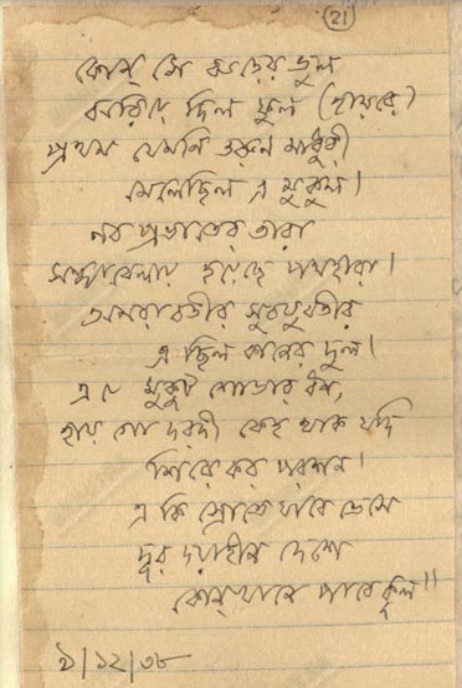 (21)
কোন্ সে ঝড়ের ভুল
ঝরিয়ে দিল ফুল (হায়রে)
প্রথম যেমনি তরুণ মাধুরী
মেলেছিল এ মুকুল।
নব প্রভাতের তারা
সন্ধ্যাবেলায় হয়েছে পথহারা।
অমরাবতীর সুরযুবতীর
এ ছিল কানের দুল।
এ যে মুকুট শোভার ধন,
হায় গো দরদী কেহ থাক যদি
শিরে কর পরশন।
এ কি স্রোতে যাবে ভেসে
দূর দয়াহীন দেশে
কোন্‌খানে পাবে কূল॥
৯/১২/৩৮